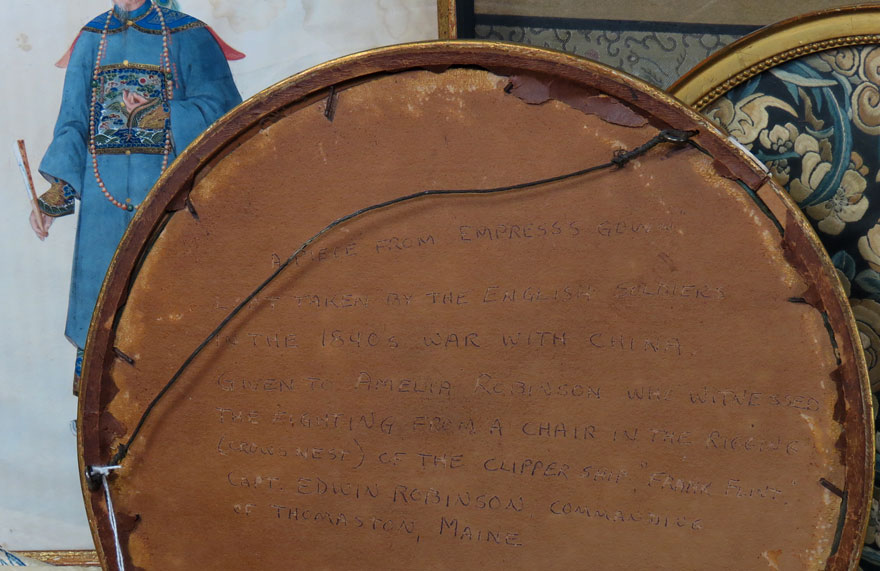 A PIECE FROM "EMPRESS'S GOWN"
LOOT TAKEN BY THE ENGLISH SOLDIERS
IN THE 1840'S WAR WITH CHINA.
GIVEN TO AMELIA ROBINSON WHO WITNESSED
THE FIGHTING FROM A CHAIR IN THE RIGGING
(CROWS NEST) OF THE CLIPPER SHIP, "FRANK FLINT.
CAPT. EDWIN ROBINSON COMMANDING
OF THOMASTON, MAINE